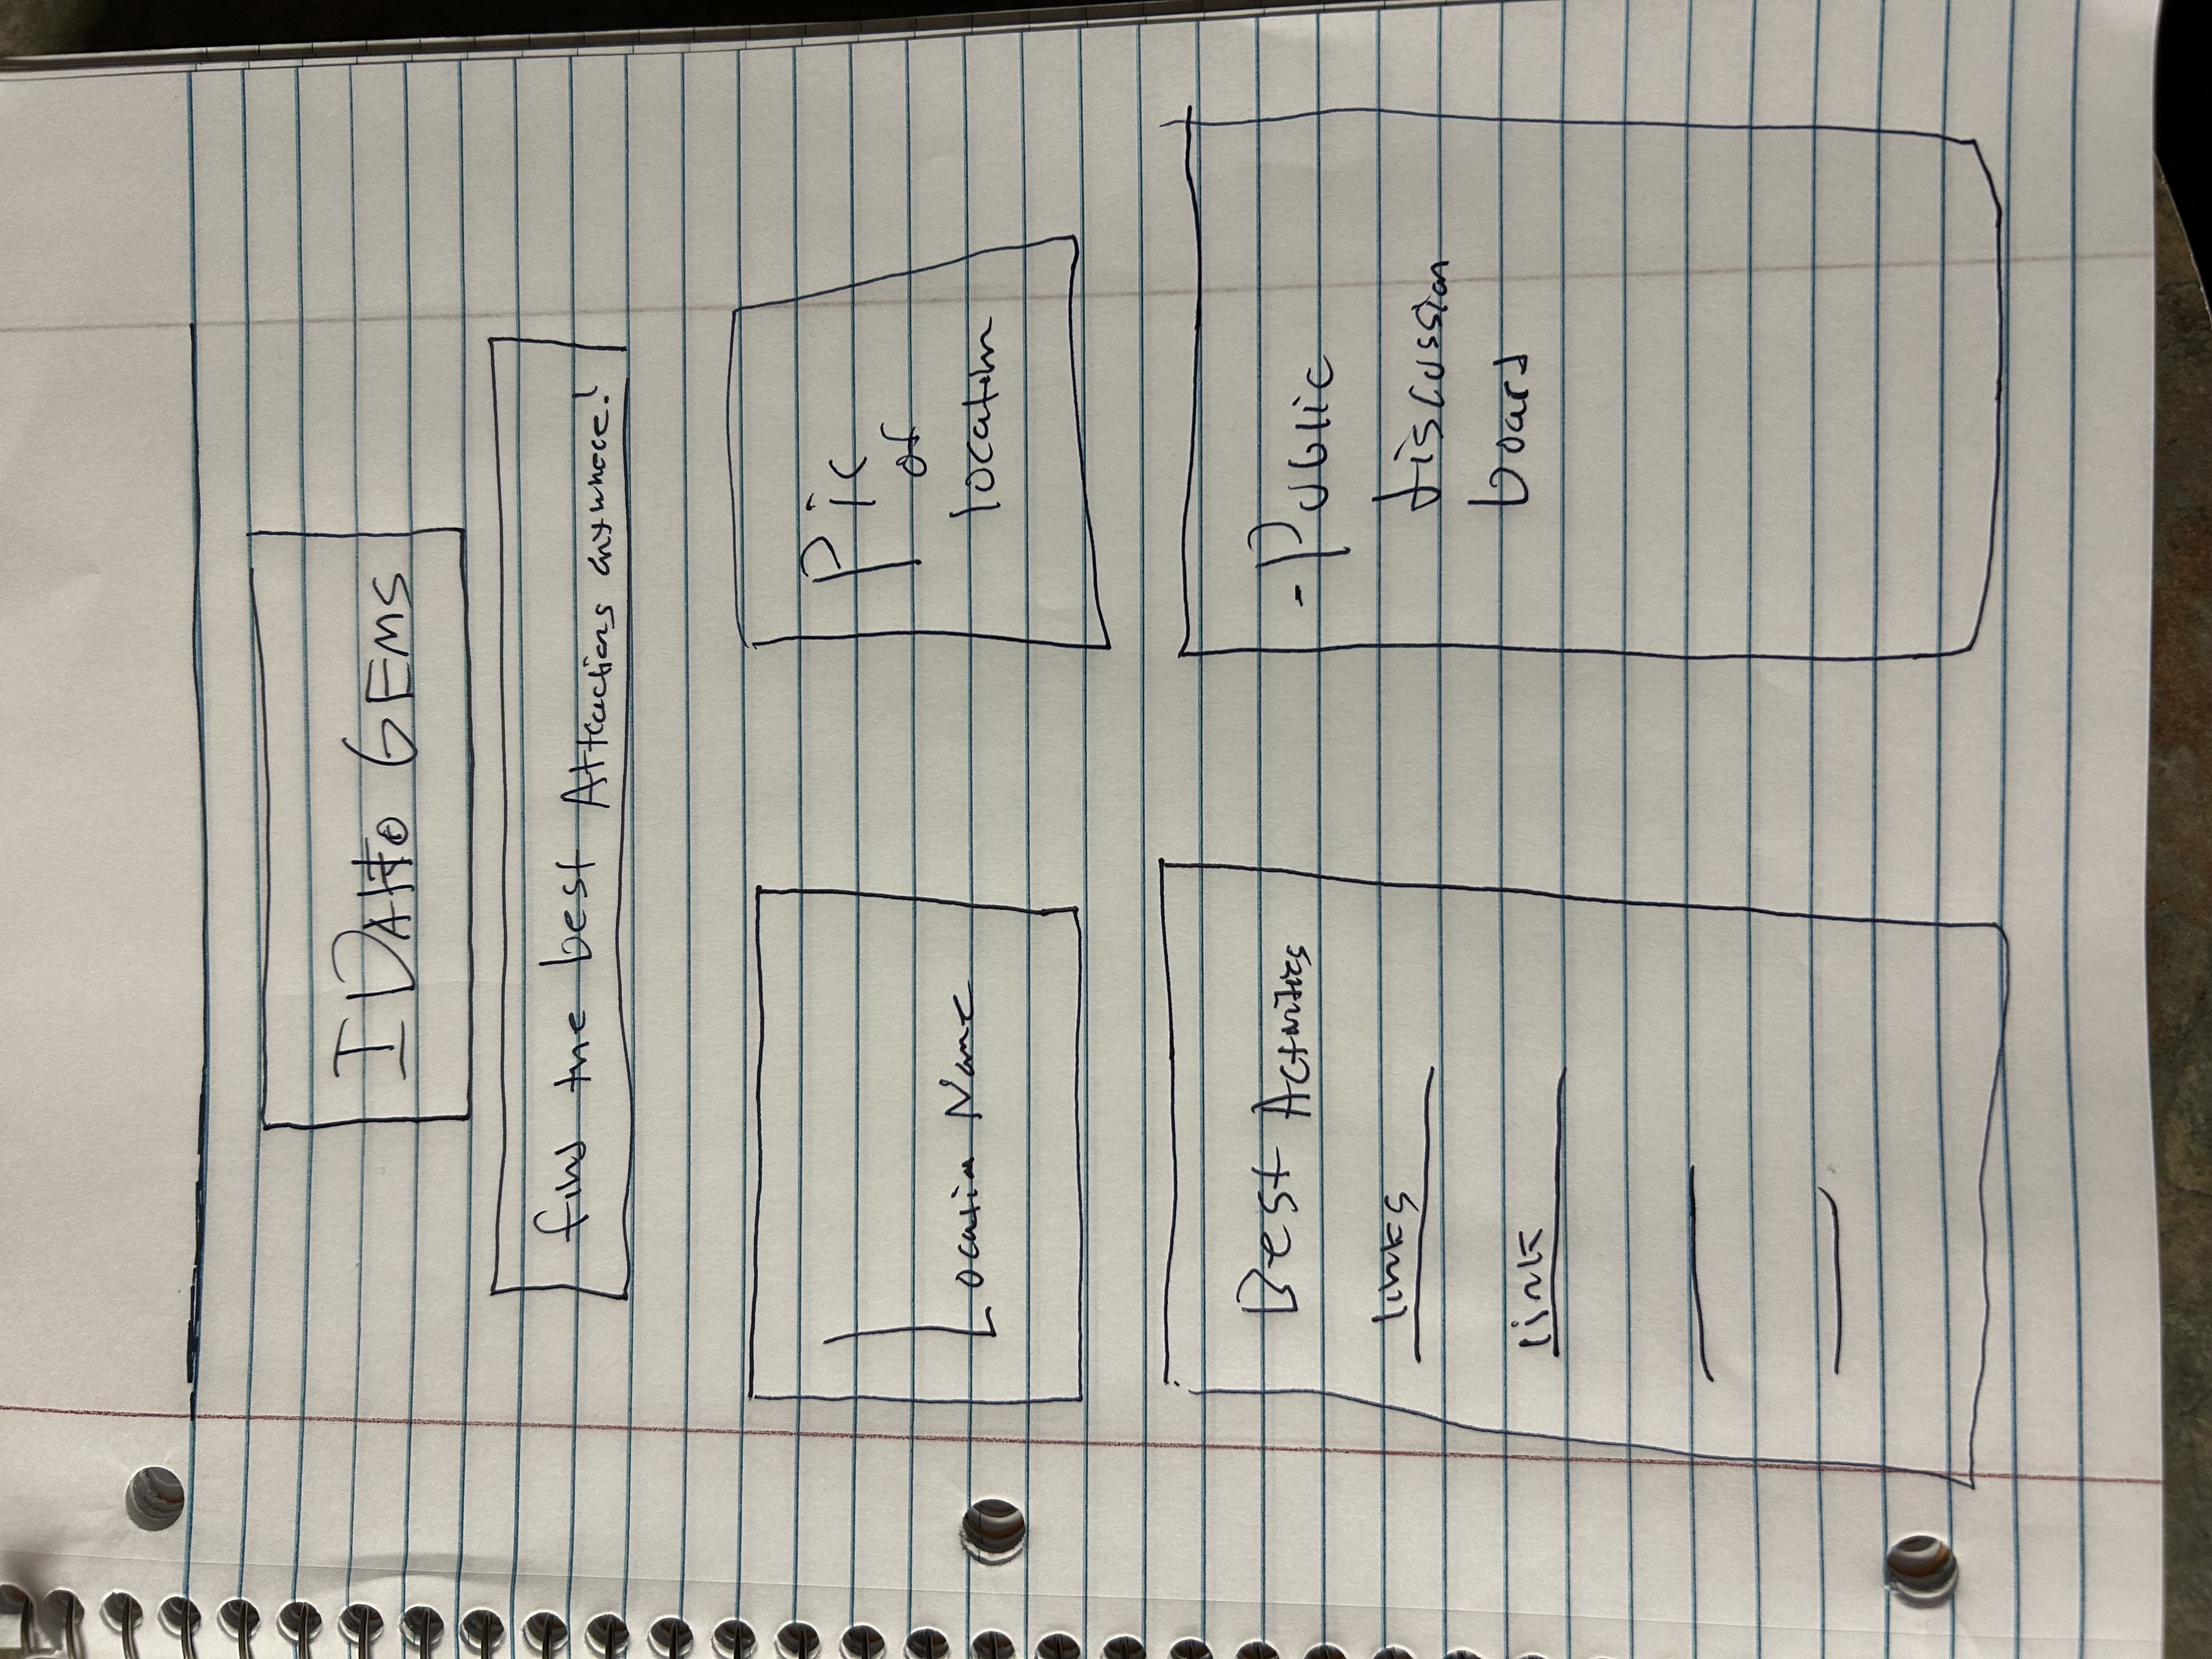 IDAHO GEMS
find the best Attractions anywhere!
Location Name
Pic
of
location
Best Activities
links
link
-Public
discussion
board